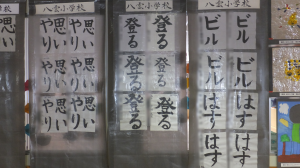 学校
八雲小学校
思いやり
思いやり
思いやり
思いやり
思いやり
思いやり
八雲小学校
登る
登る
登る
登る
登る
登る
八雲小学校
ビル
ビル
ビル
ビル
はす
はす
はす
はす